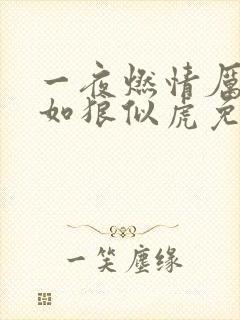 一夜燃情厲
如狼似虎免
一笑塵缘